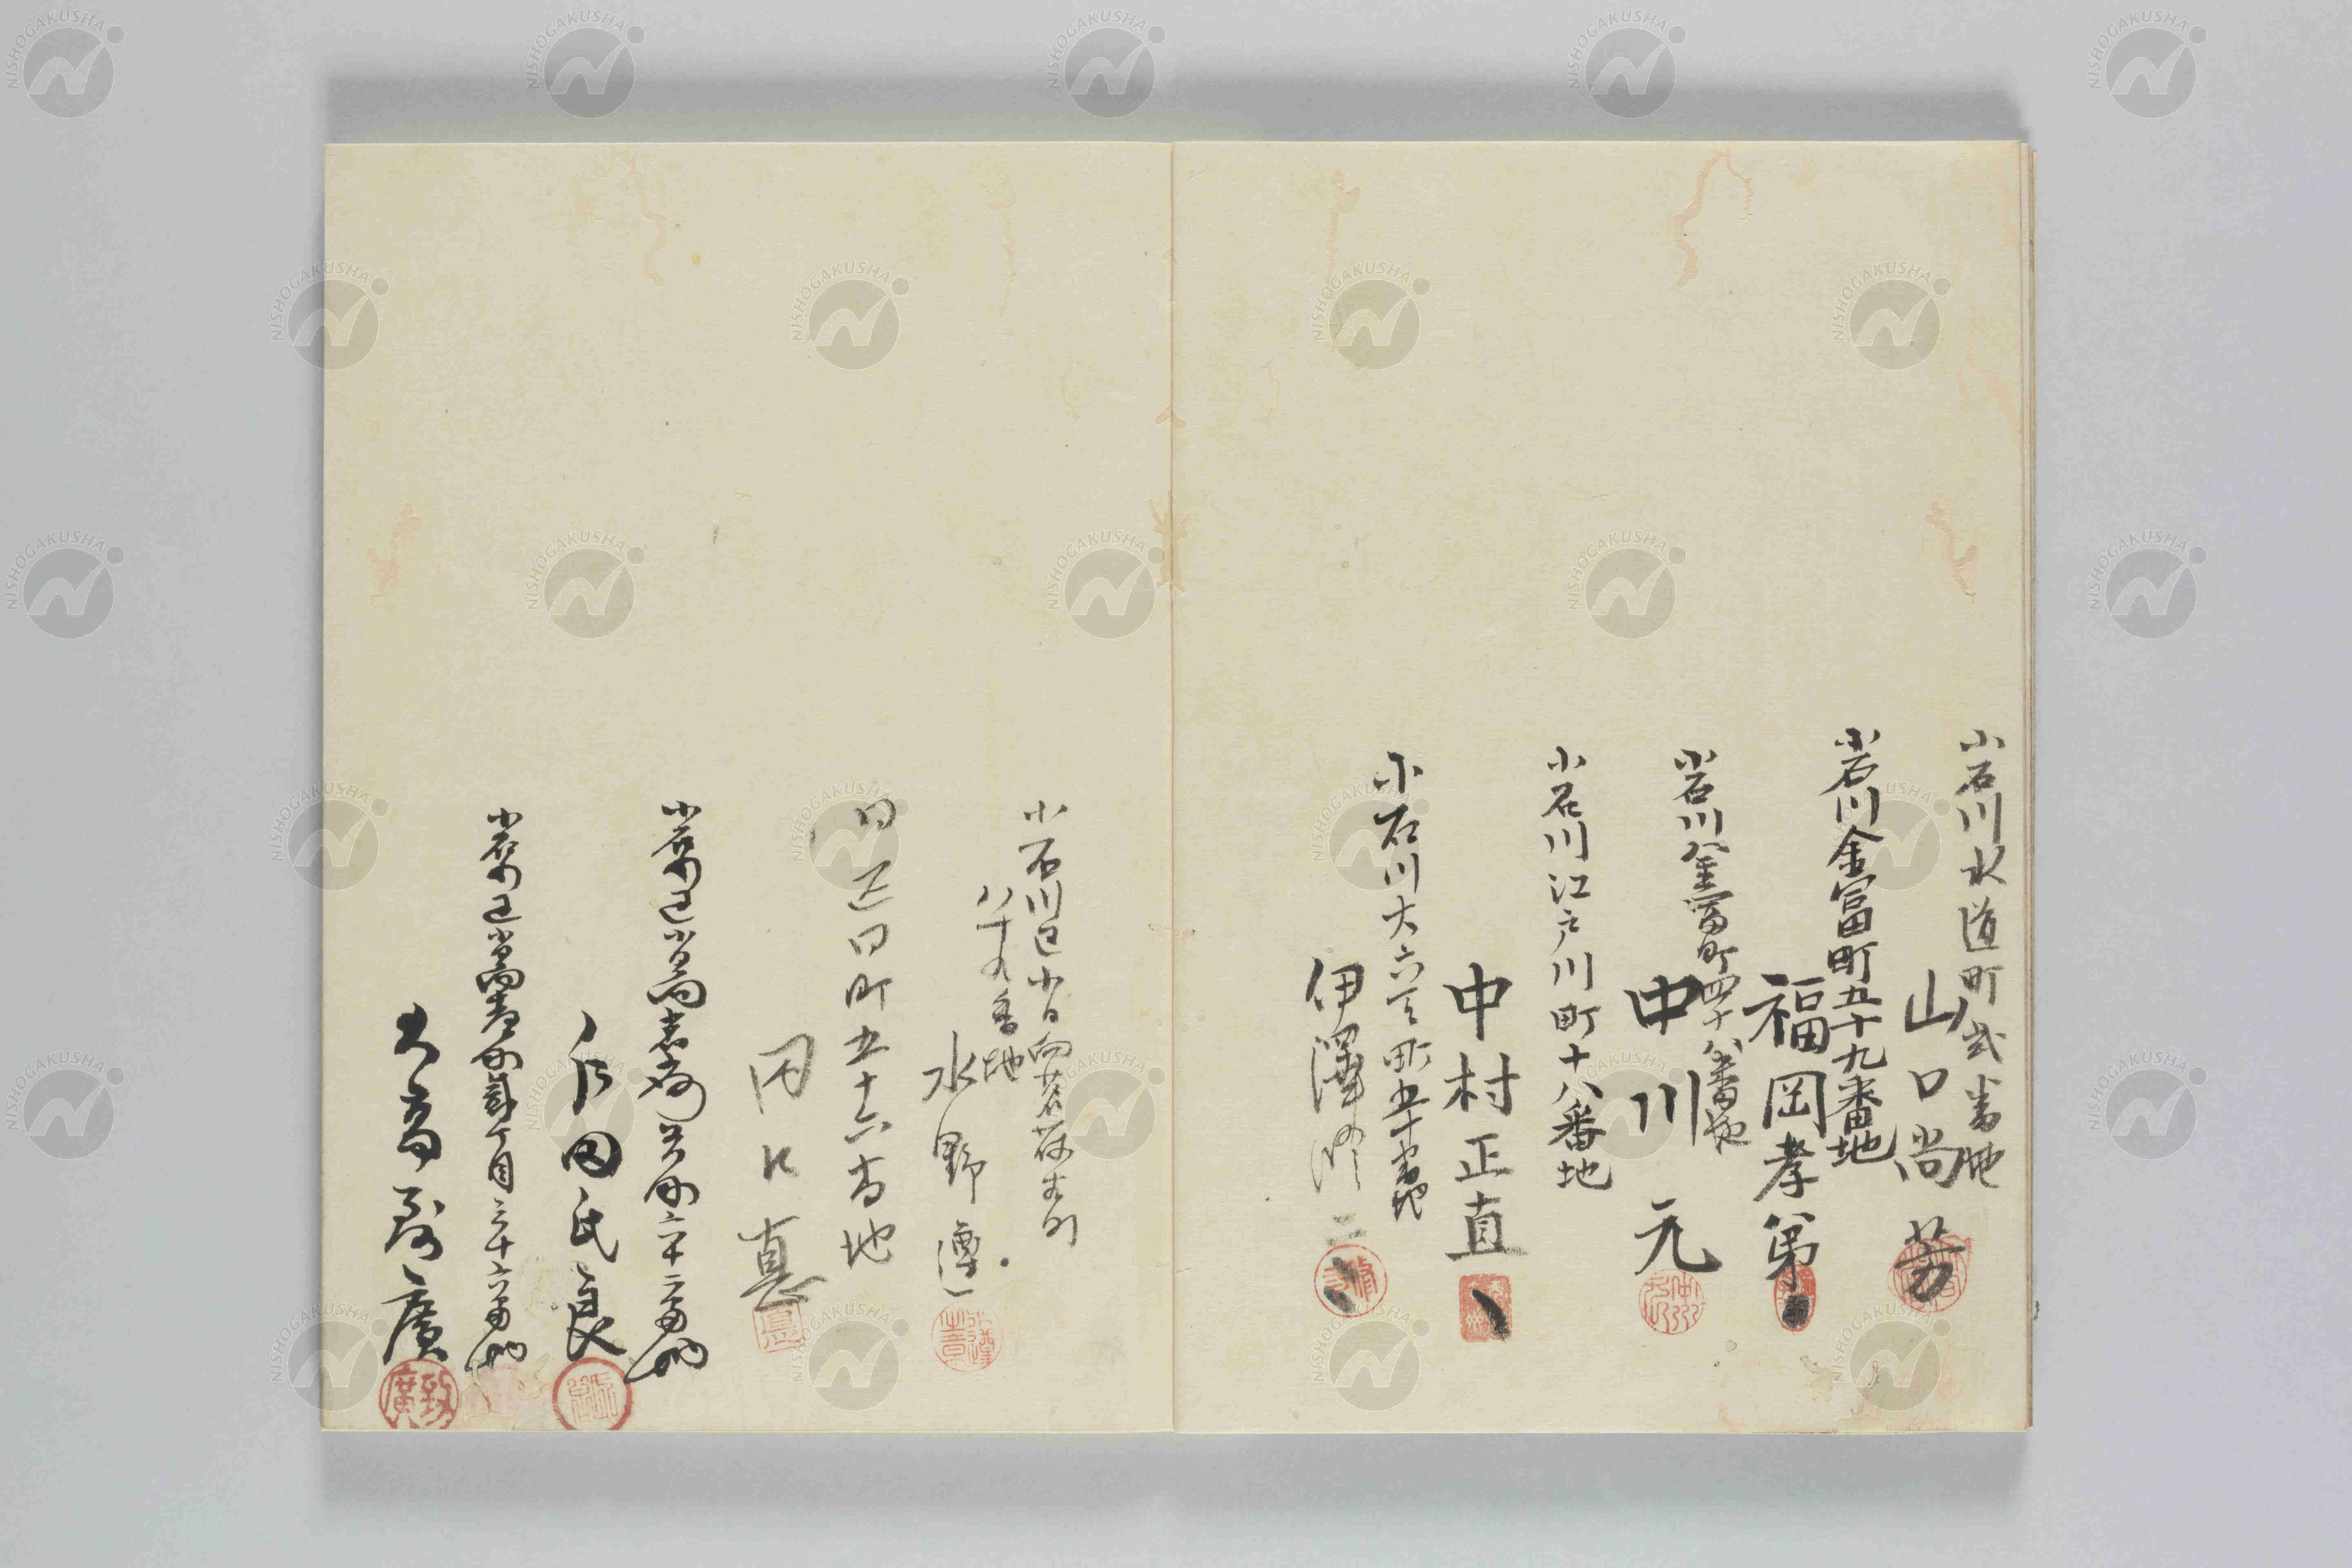 小石川水道町弐番地
山口尚芳
小石川金富町五十九番地
福岡孝弟
小石川金富町四十八番地
中川元
小石川江戸川町十八番地
中村正直
小石川大六天町五十番地
伊澤修二
小石川区小日向茗荷谷町
八十九番地
水野遵
同区同町五十六番地
小石川区小日向茗荷谷町六十二番地
仁田氏良
小石川区小日向
丁目三十六番地
廣
NISHOGAKUSHA